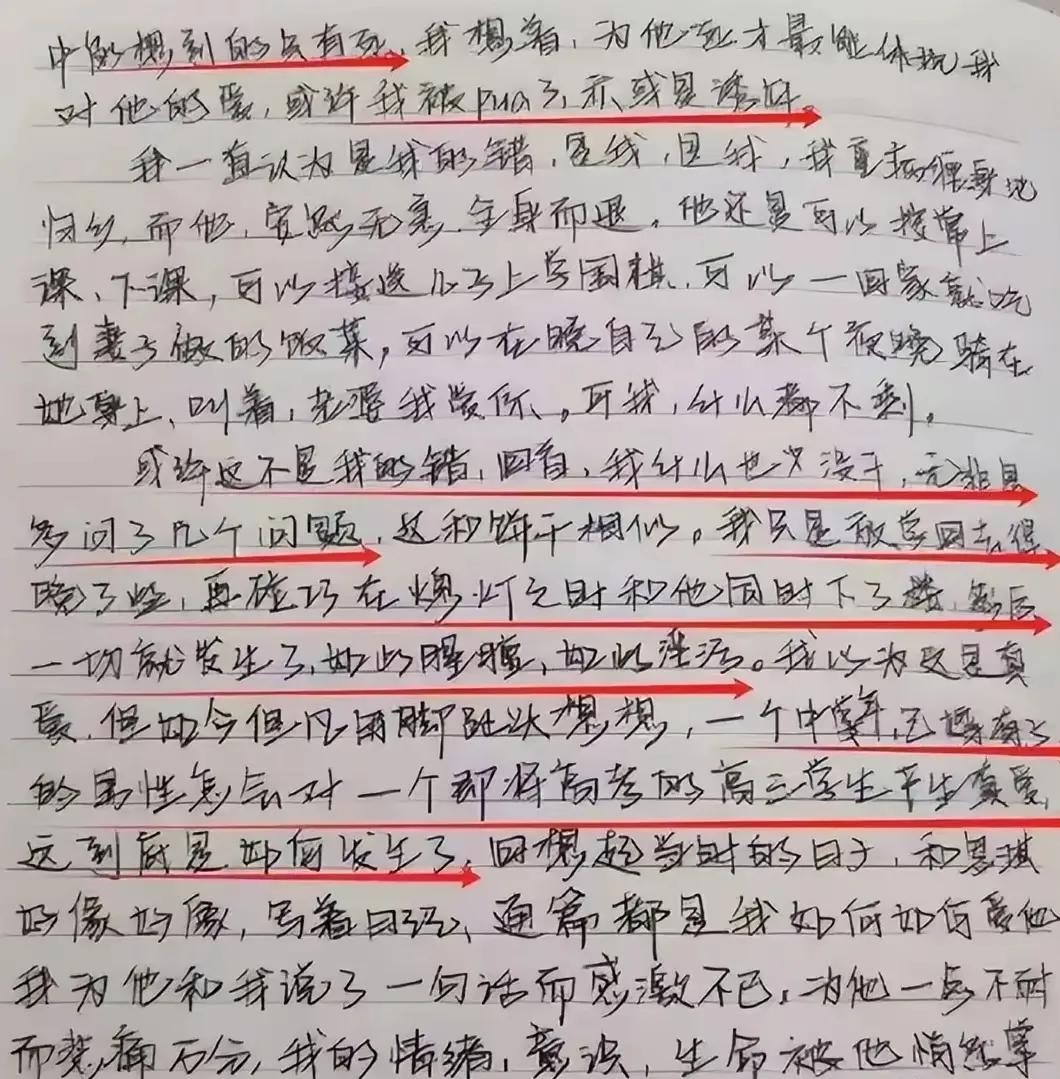 中能想到的只有死,我想着,为他死才最能体现我
对他的爱,或许我被pua了,亦或是诱奸。
我一直认为是我的错,是我,是我,我
归纠,而他,安然无恙,全身而退,他还是可以接常上
课、下课,可以接送儿子上学围棋,可以一回家就吃
到妻子做的饭菜,可以在晚自己的某个夜晚骑在
她身上,叫着,老婆我爱你、。可我,什么都不剩。
或许这不是我的错,回首,我什么也没干,无非是
多问了几个问题,这和饼干相似。我只是放学回去得
晚了些,再碰巧在熄灯之时和他同时下了楼,然后
一切就发生了,如此腥膻,如此淫污。我以为这是真
爱,但如今但凡用脚趾头想想,一个中年,已婚有子
的男性怎会对一个即将高考的高三学生产生真爱,
这到底是如何发生了,回想起当时的日子,和思琪
好像好像,写着日记,通篇都是我如何如何爱他
我为他和我说了一句话而感激不已,为他一点不耐
而悲痛万分,我的情绪,意识,生命被他悄然掌